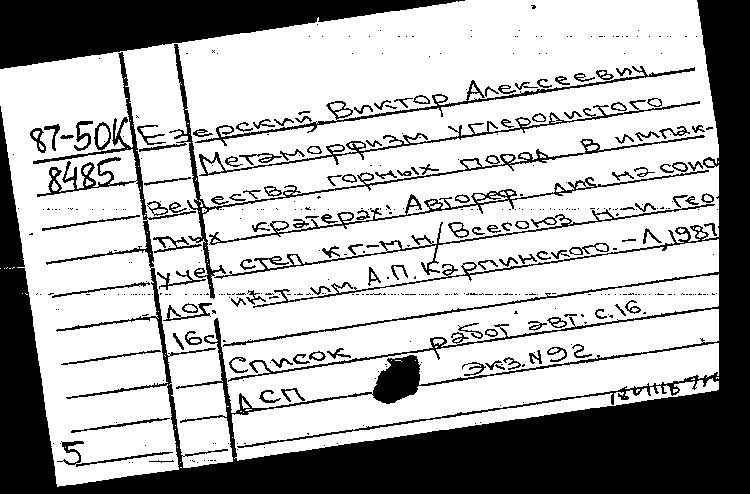 87-50К
8485
Езерский, Виктор Алексеевич.
Метаморфизм углеродистого
вещества горных пород в импак-
тных кратерах: Автореф. дис на соиск
учен. степ к.г.-м.н/Всесоюз н.-и. гео-
лог. ин-т им. А.П. Карпинского. – Л, 1987
16с
Список работ авт: с.16.
ДСП экз. N92.
5